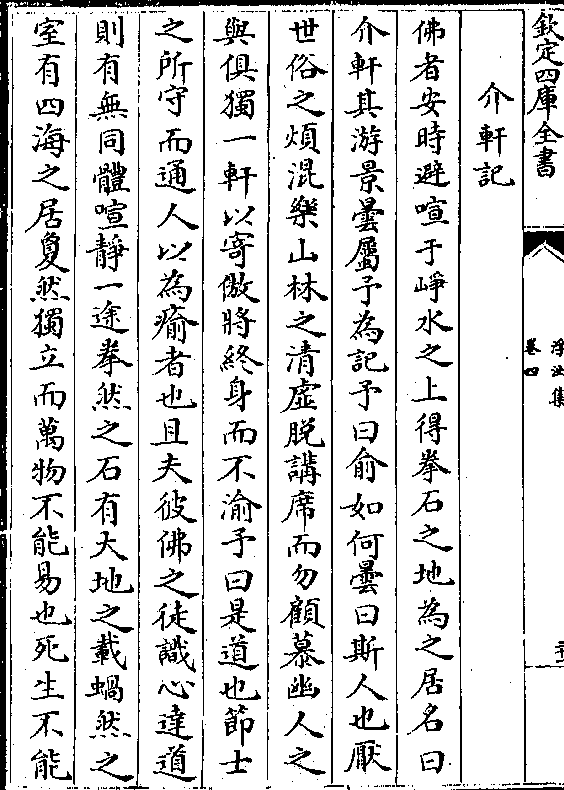 欽定四庫全書
浮沚集
卷四
介軒記
佛者安時避喧于崢水之上得拳石之地為之居名曰
介軒其游景曇屬予為記予曰俞如何曇曰斯人也厭
世俗之煩混樂山林之清虛脱講席而勿顧慕幽人之
與俱獨一軒以寄傲將終身而不渝予曰是道也節士
之所守而通人以為瘉者也且夫彼佛之徒識心達道
則有無同體喧靜一途拳然之石有大地之載蝸然之
室有四海之居夐然獨立而萬物不能易也死生不能